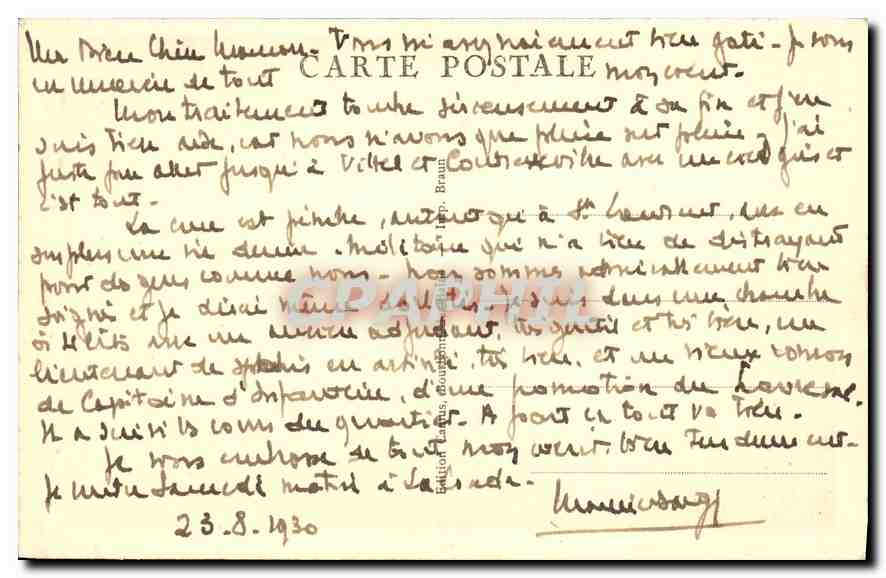 Ma bien Chère Maman. Vous m'avez vraiment bien gâté - Je vous
CARTE POSTALE
en remercie de tout mon cœur.
Mon traitement touche à sa fin et j'en
suis bien aise, car nous n'avons que pluie sur pluie - J'ai
juste pu aller jusqu'à Vittel et Contrexeville avec un et
c'est tout -
La cure est pénible, autant qu'à St
en plus une vie demie - militaire qui n'a rien de distrayant
pour des gens comme nous - nous sommes admirablement bien
soignés et je dirai même dorlotés. Je suis dans une chambre
à 4 lits avec un ancien adjudant, très gentil et très bien, un
lieutenant de spahis en activité, très bien, et un vieux
de Capitaine d'infanterie, d'une promotion du
Il a suivi les cours du quartier. A part ça tout va bien.
Je vous embrasse de tout mon cœur, bien tendrement -
Je samedi matin à
23.8.1930
Edition Lanus, Bourbonne-les-Bains
Imp. Braun
CPAPHIL